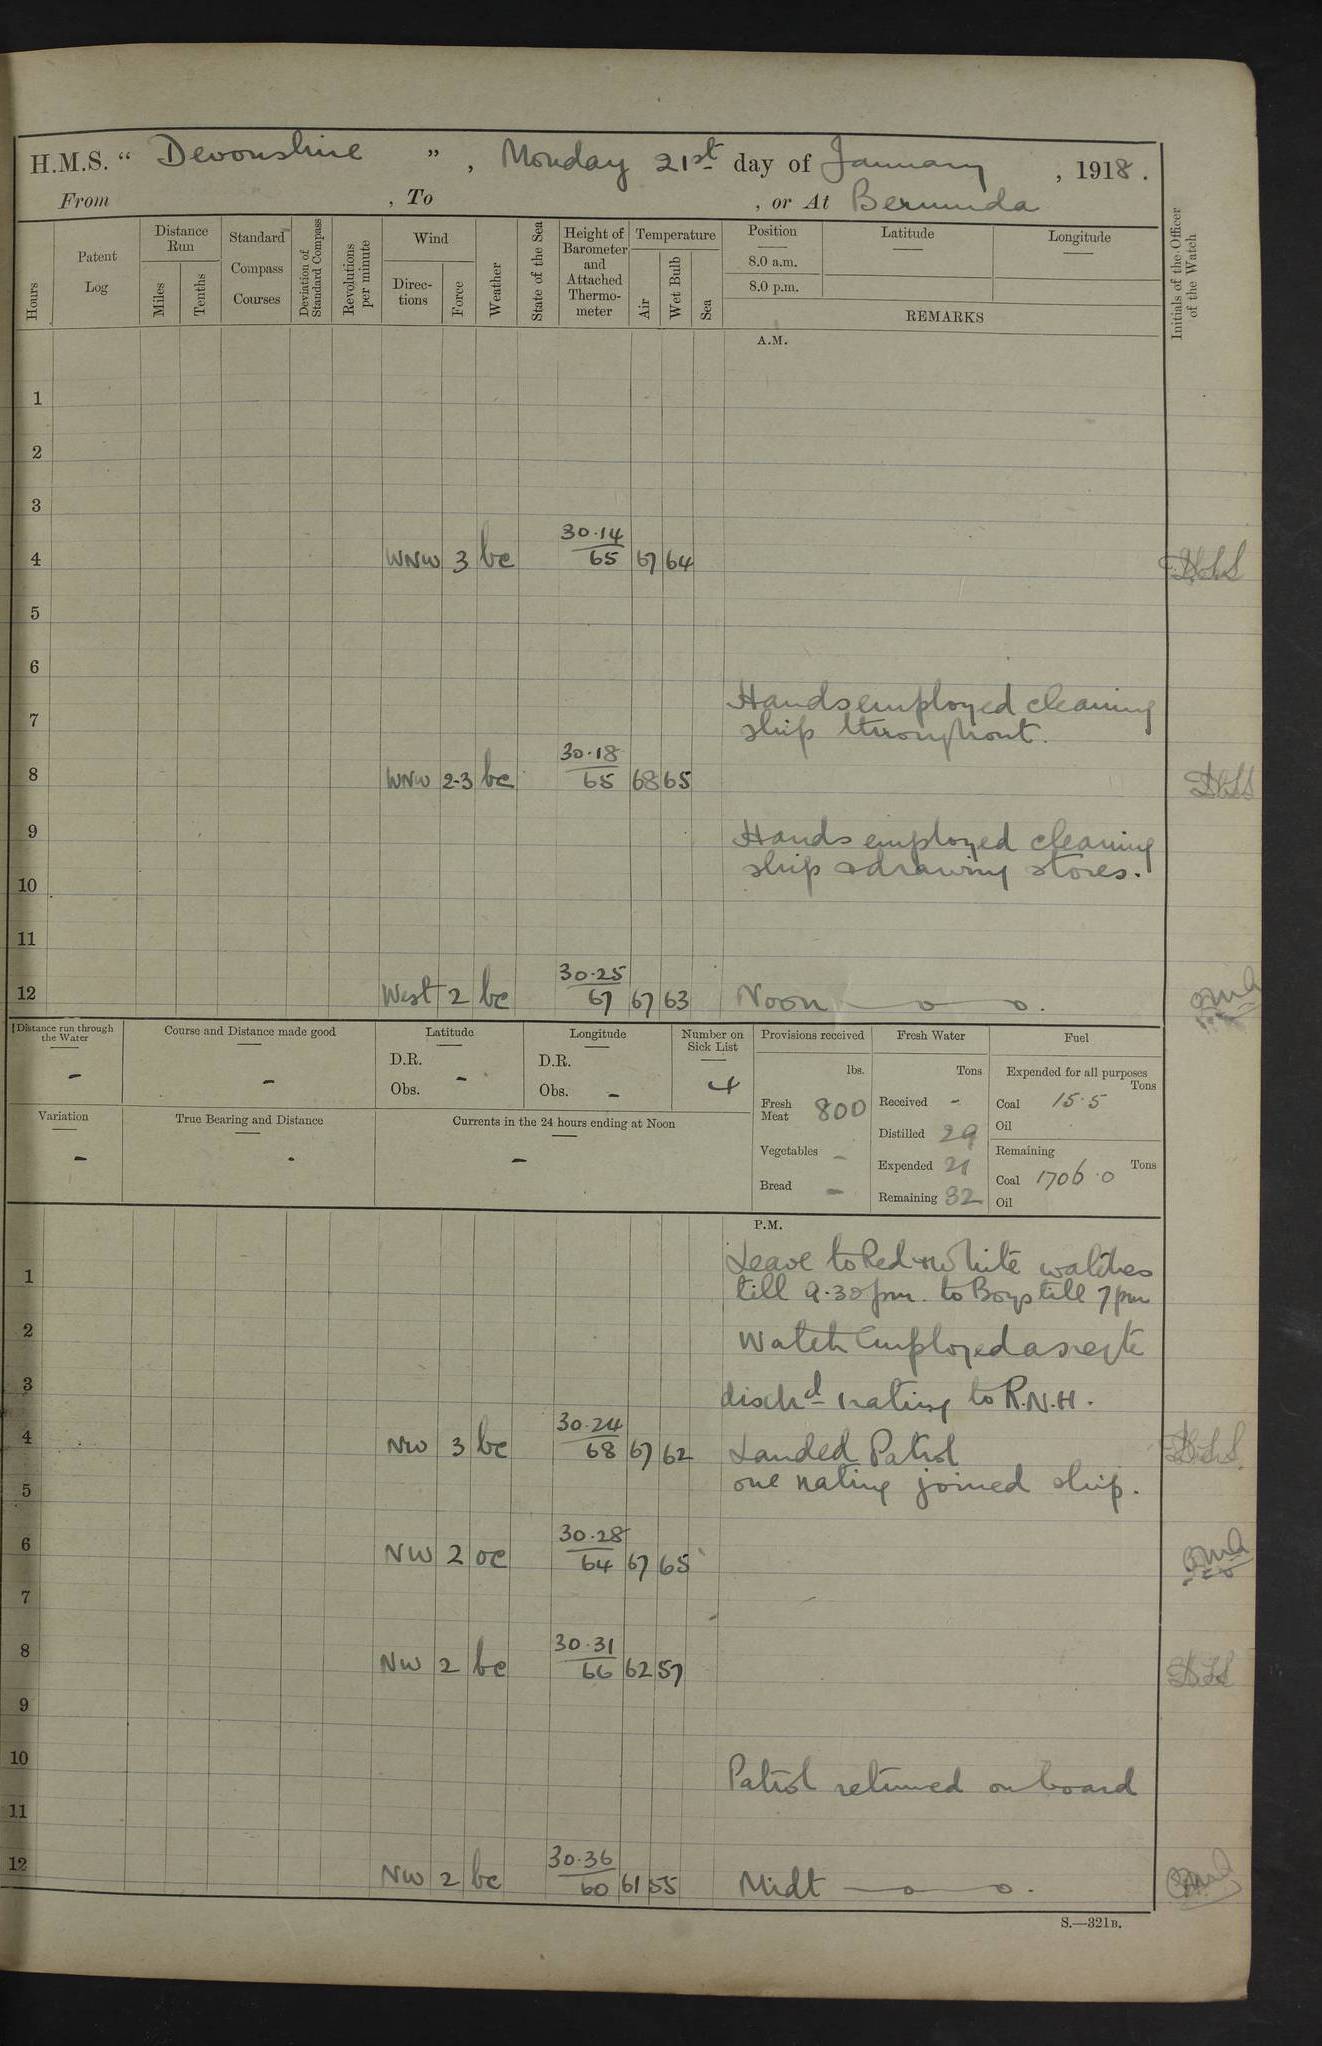 H.M.S. “ Devonshire ” , Monday 21st day of January , 1918 .
From , To , or At Bermuda
Hours
Patent Log
Distance Run
Miles
Tenths
Standard Compass Courses
Deviation of Standard Compass
Revolutions per minute
Wind
Directions
Force
Weather
State of the Sea
Height of Barometer and Attached Thermometer
Temperature
Air
Wet Bulb
Sea
Position
8.0 a.m.
8.0 p.m.
Latitude
Longitude
REMARKS
Initials of the Officer of the Watch
A.M.
1
2
3
4 WNW 3 bc 30·14 65 67 64
5
6
Hands employed cleaning
7 ship throughout.
8 WNW 2-3 bc 30·18 65 68 65
9 Hands employed cleaning
10 ship & drawing stores.
11
12 West 2 bc 30·25 67 67 63 Noon
Distance run through the Water -
Course and Distance made good -
Latitude
D.R.
Obs. -
Longitude
D.R.
Obs. -
Number on Sick List
4
Provisions received
lbs.
Fresh Meat 800
Vegetables -
Bread -
Fresh Water
Tons
Received -
Distilled 29
Expended 21
Remaining 82
Fuel
Expended for all purposes
Tons
Coal 15·5
Oil
Remaining
Tons
Coal 1706·0
Oil
Variation -
True Bearing and Distance -
Currents in the 24 hours ending at Noon -
P.M.
Leave to Red & White watches
1 till 9·30pm. to Boys till 7pm
2 Watch Employed as reqte
3 dischd 1 rating to R.N.H.
4 NW 3 bc 30·24 68 67 62 Landed Patrol
5 one rating joined ship.
6 NW 2 oc 30·28 64 67 65
7
8 NW 2 bc 30·31 66 62 57
9
10 Patrol returned on board
11
12 NW 2 bc 30·36 60 61 55 Midt
S.—321B.